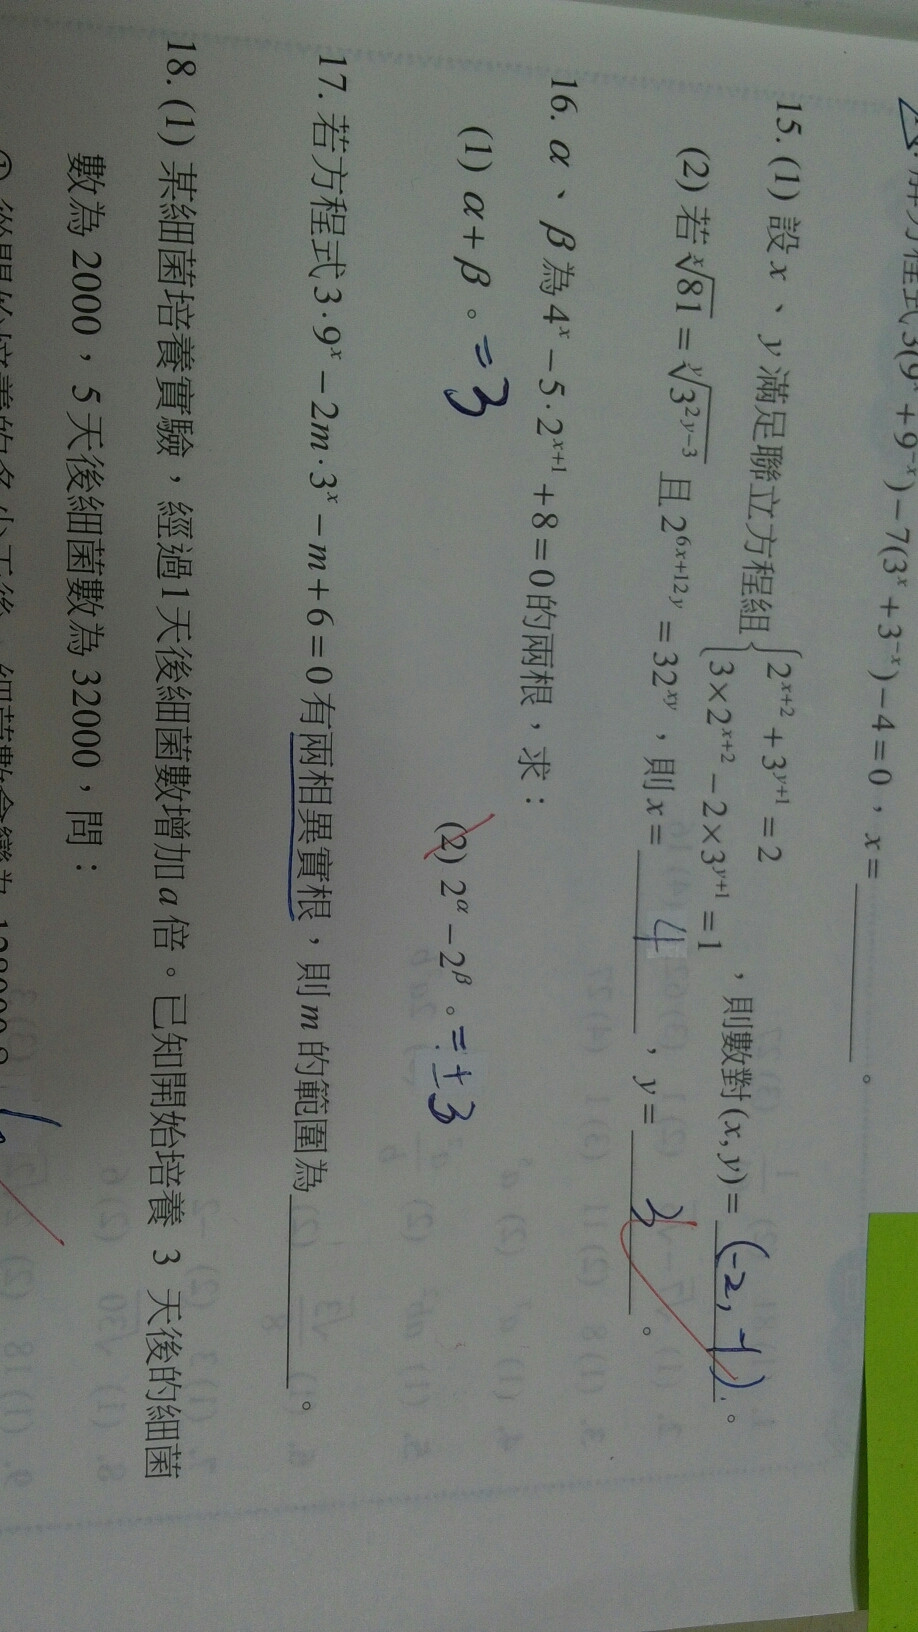 解方程式3(9ˣ+9⁻ˣ)−7(3ˣ+3⁻ˣ)−4=0，x=______。
15. (1) 設x、y滿足聯立方程組{2ˣ⁺²+3ʸ⁺¹=2
3×2ˣ⁺²−2×3ʸ⁺¹=1，則數對(x,y)=(-2,-1)。
(2) 若ˣ√81=ʸ√3²ʸ⁻³且2⁶ˣ⁺¹²ʸ=32ˣʸ，則x=4，y=3。
16. α、β為4ˣ−5·2ˣ⁺¹+8=0的兩根，求：
(1) α+β。=3 (2) 2^α−2^β。=±3
17. 若方程式3·9ˣ−2m·3ˣ−m+6=0有兩相異實根，則m的範圍為______。
18. (1) 某細菌培養實驗，經過1天後細菌數增加a倍。已知開始培養 3 天後的細菌
數為2000，5天後細菌數為32000，問：